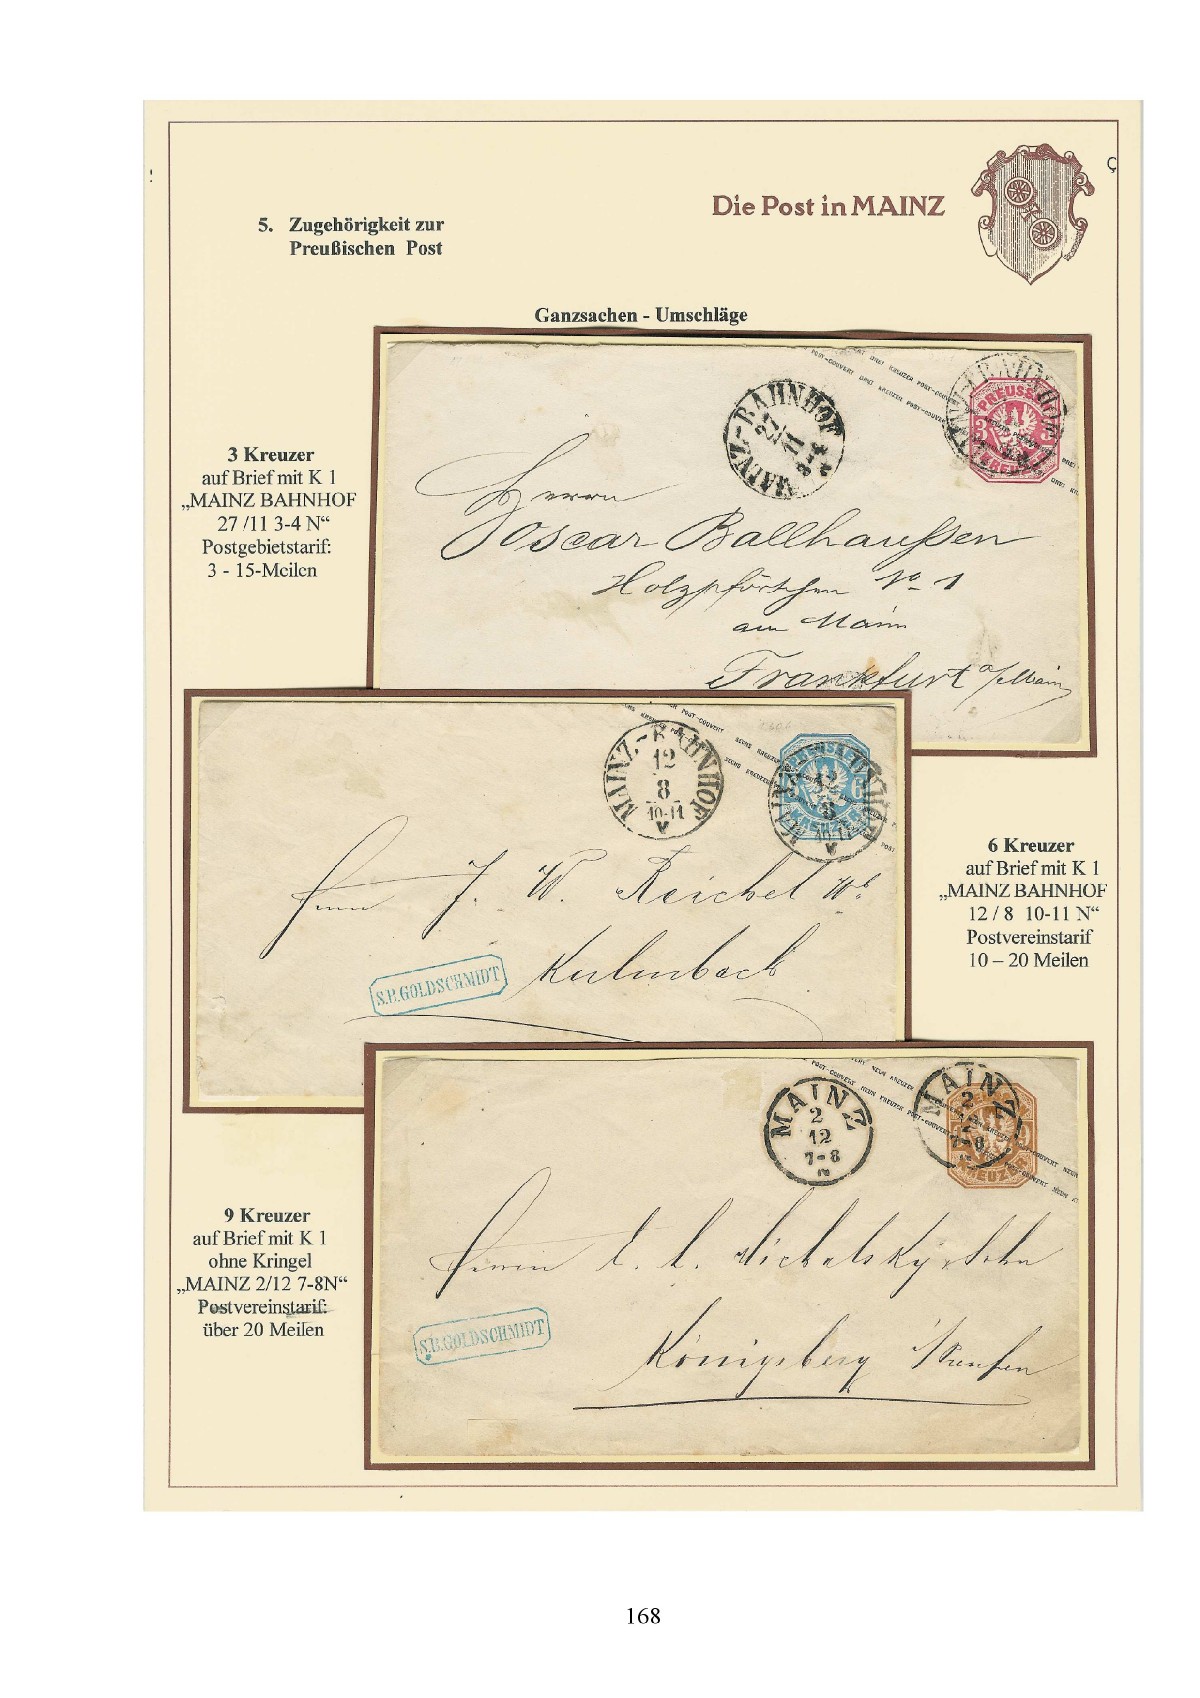 Die Post in MAINZ
5. Zugehörigkeit zur
Preußischen Post
Ganzsachen - Umschläge
3 Kreuzer
auf Brief mit K 1
„MAINZ BAHNHOF
27 /11 3-4 N“
Postgebietstarif:
3 - 15-Meilen
MAINZ-BAHNHOF
27
11
3-4
PREUSSEN
3
Herrn
Oscar Ballhaußen
Holzpförtchen No 1
am Main
Frankfurt a/Main
MAINZ-BAHNHOF
12
8
10-11
V
6
KREUZER
J. W. Reichel
Kulmbach
S.B.GOLDSCHMIDT
6 Kreuzer
auf Brief mit K 1
„MAINZ BAHNHOF
12 / 8 10-11 N“
Postvereinstarif
10 – 20 Meilen
MAINZ
2
12
7-8
N
MAINZ
2
12
7-8
9
KREUZER
9 Kreuzer
auf Brief mit K 1
ohne Kringel
„MAINZ 2/12 7-8N“
Postvereinstarif:
über 20 Meilen
S.B.GOLDSCHMIDT
Königsberg i/Preußen
168